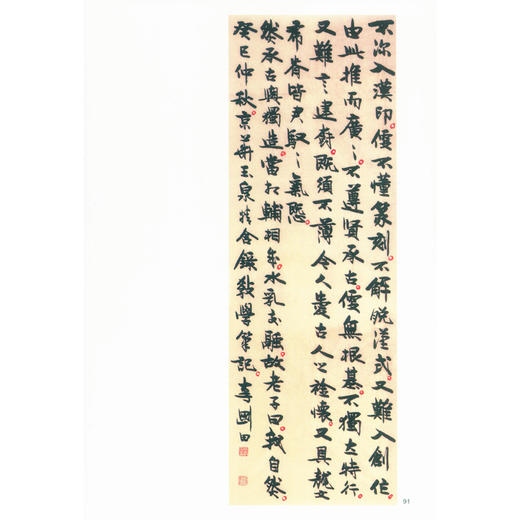 不深入漢印便不懂篆刻不解脱漢式又難入創作
由此推而廣之不遵賢承古便無根基不獨立特行
又難言建树既須不薄今人愛古人之襟懷又具龍文
虎脊皆君馭之氣慨
然承古與獨造當相輔相成水乳交融故老子曰我自然
癸巳仲秋京華玉泉精舍錄教學筆記李國田
91